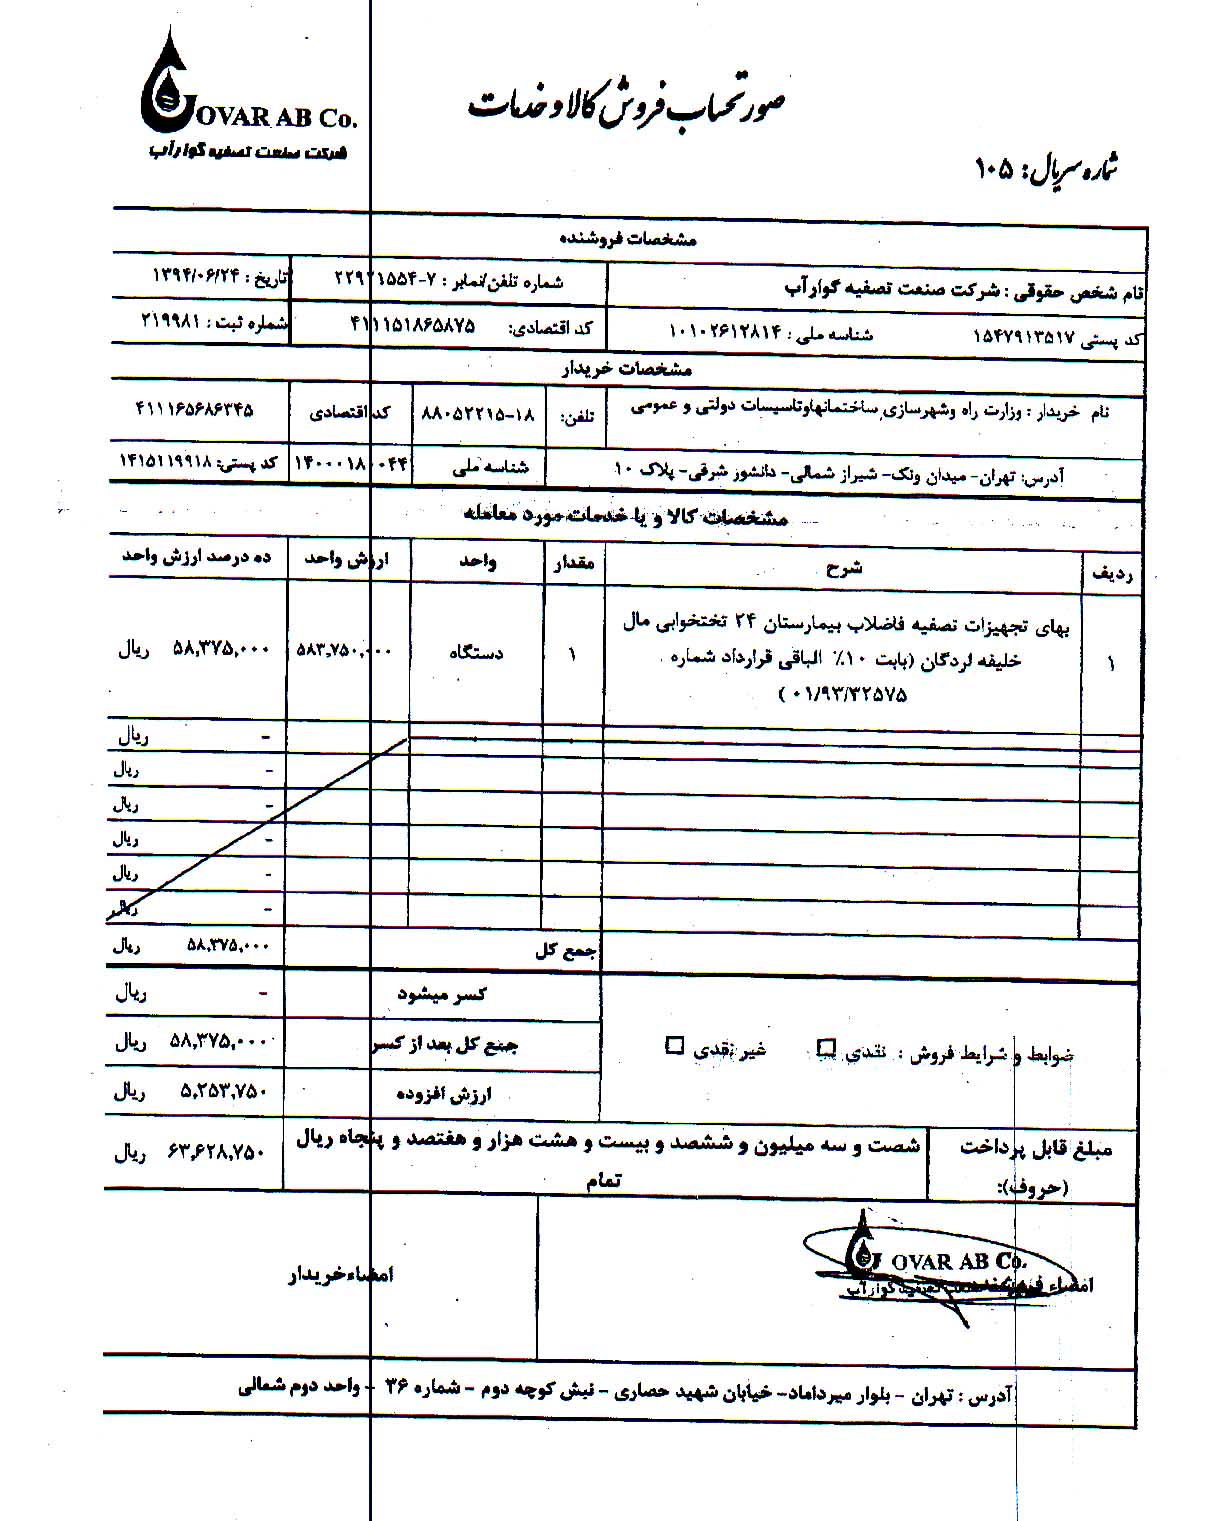 OVAR AB Co.
شرکت صنعت تصفیه گوارآب
صورتحساب فروش کالا و خدمات
شماره سریال: ۱۰۵
مشخصات فروشنده
نام شخص حقوقی : شرکت صنعت تصفیه گوارآب شماره تلفن/نمابر : ۷-۲۲۹۲۱۵۵۴ تاریخ : ۱۳۹۴/۰۶/۲۴
کد پستی ۱۵۴۷۹۱۳۵۱۷ شناسه ملی : ۱۰۱۰۲۶۱۲۸۱۴ کد اقتصادی: ۴۱۱۱۵۱۸۶۵۸۷۵ شماره ثبت : ۲۱۹۹۸۱
مشخصات خریدار
نام خریدار : وزارت راه وشهرسازی ساختمانهاوتاسیسات دولتی و عمومی تلفن: ۸۸۰۵۲۲۱۵-۱۸ کد اقتصادی ۴۱۱۱۶۵۶۸۶۳۴۵
آدرس: تهران- میدان ونک- شیراز شمالی- دانشور شرقی- پلاک ۱۰ شناسه ملی ۱۴۰۰۰۱۸۰۰۴۴ کد پستی: ۱۴۱۵۱۱۹۹۱۸
مشخصات کالا و یا خدمات مورد معامله
ردیف شرح مقدار واحد ارزش واحد ده درصد ارزش واحد
۱ بهای تجهیزات تصفیه فاضلاب بیمارستان ۲۴ تختخوابی مال ۱ دستگاه ۵۸۳,۷۵۰,۰۰۰ ۵۸,۳۷۵,۰۰۰ ریال
خلیفه لردگان (بابت ۱۰٪ الباقی قرارداد شماره
۰۱/۹۳/۳۲۵۷۵ )
- ریال
- ریال
- ریال
- ریال
- ریال
- ریال
جمع کل ۵۸,۳۷۵,۰۰۰ ریال
کسر میشود - ریال
ضوابط و شرایط فروش : نقدی غیر نقدی
جمع کل بعد از کسر ۵۸,۳۷۵,۰۰۰ ریال
ارزش افزوده ۵,۲۵۳,۷۵۰ ریال
مبلغ قابل پرداخت شصت و سه میلیون و ششصد و بیست و هشت هزار و هفتصد و پنجاه ریال ۶۳,۶۲۸,۷۵۰ ریال
(حروف): تمام
OVAR AB Co.
امضاء فروشنده امضاء خریدار
گوارآب
آدرس : تهران - بلوار میرداماد- خیابان شهید حصاری - نبش کوچه دوم - شماره ۳۶ - واحد دوم شمالی